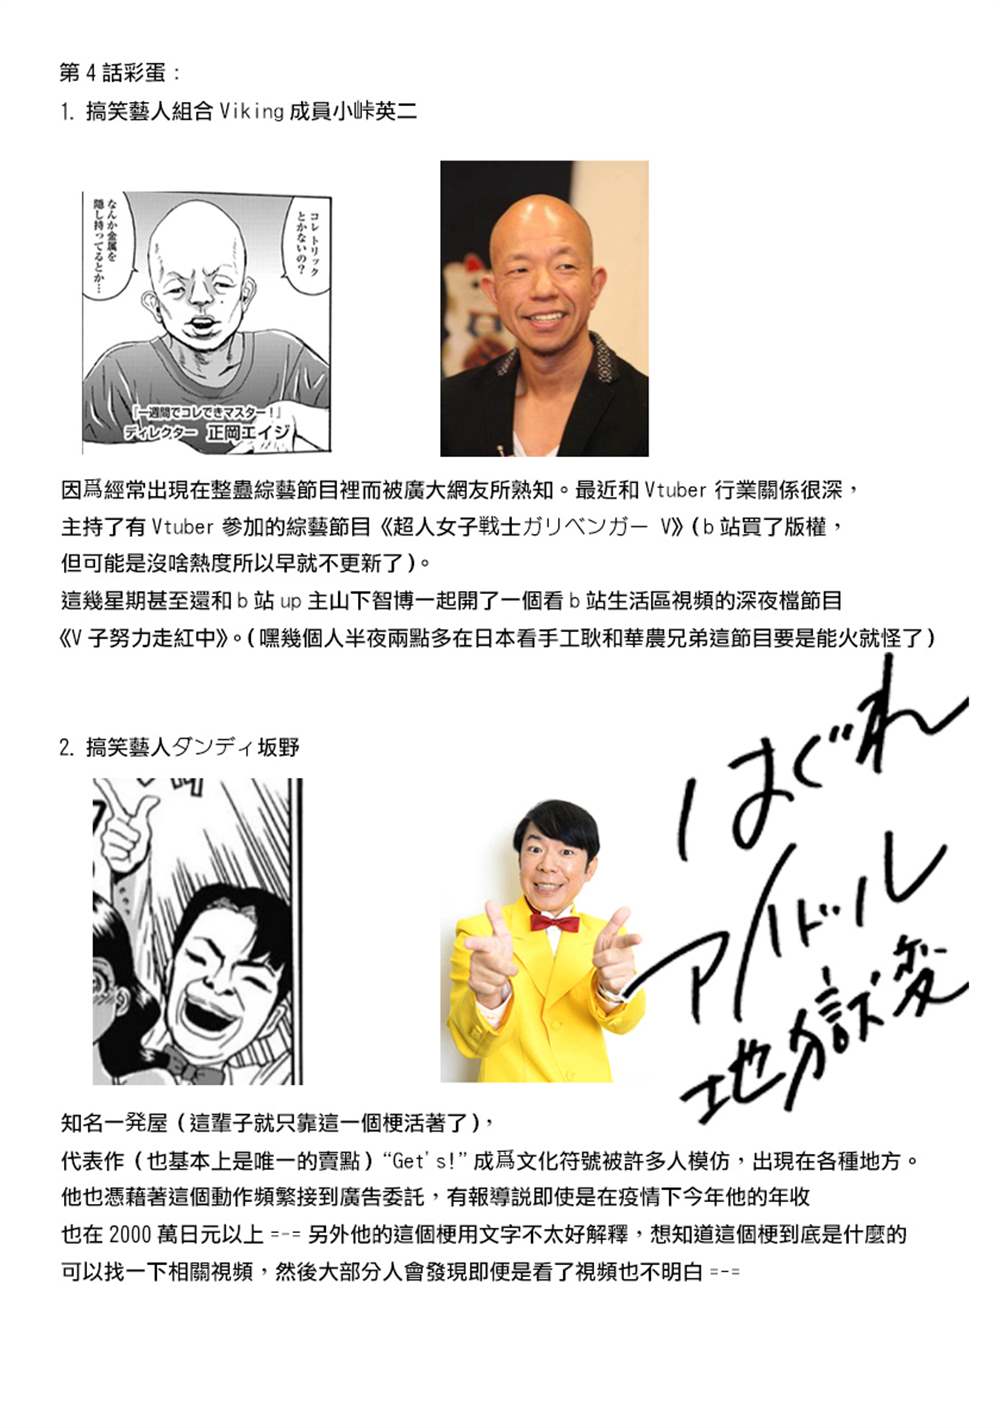 第4話彩蛋：
1. 搞笑藝人組合Viking成員小峠英二
コレトリック
とかないの？
なんか金属を
隠し持ってるとか…
『一週間でコレできマスター！』
ディレクター 正岡エイジ
因爲經常出現在整蠱綜藝節目裡而被廣大網友所熟知。最近和Vtuber行業關係很深，
主持了有Vtuber參加的綜藝節目《超人女子戦士ガリベンガー V》(b站買了版權，
但可能是沒啥熱度所以早就不更新了)。
這幾星期甚至還和b站up主山下智博一起開了一個看b站生活區視頻的深夜檔節目
《V子努力走紅中》。(嘿幾個人半夜兩點多在日本看手工耿和華農兄弟這節目要是能火就怪了)
はぐれ
アイドル
地獄変
2. 搞笑藝人ダンディ坂野
知名一発屋(這輩子就只靠這一個梗活著了)，
代表作(也基本上是唯一的賣點)“Get's!”成爲文化符號被許多人模仿，出現在各種地方。
他也憑藉著這個動作頻繁接到廣告委託，有報導説即使是在疫情下今年他的年收
也在2000萬日元以上=-=另外他的這個梗用文字不太好解釋，想知道這個梗到底是什麼的
可以找一下相關視頻，然後大部分人會發現即便是看了視頻也不明白=-=